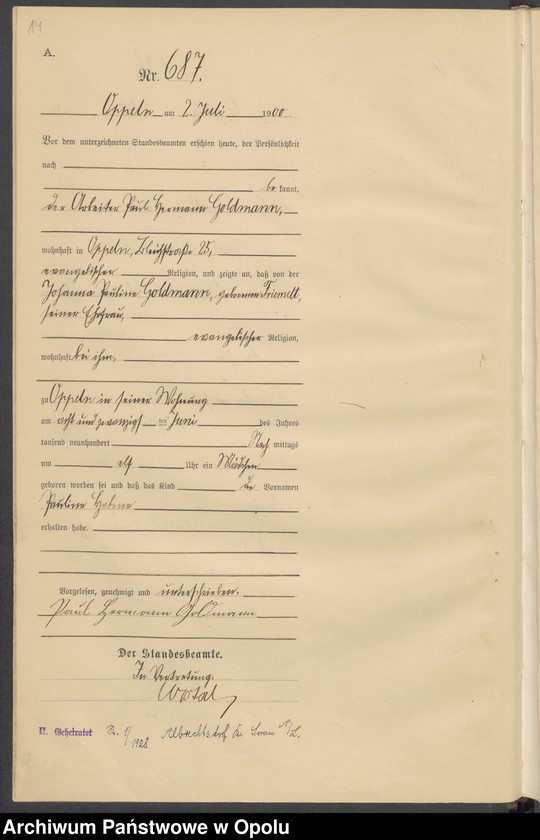 14
A.
Nr. 687.
Oppeln am 2. Juli 1900
Vor dem unterzeichneten Standesbeamten erschien heute, der Persönlichkeit
nach
be kannt,
der Arbeiter Paul Hermann Goldmann,
wohnhaft in Oppeln, Bleichstraße 25,
evangelischer Religion, und zeigte an, daß von der
Johanna Pauline Goldmann, geborenen Friemelt,
seiner Ehefrau,
evangelischer Religion,
wohnhaft bei ihm,
zu Oppeln in seiner Wohnung
am acht und zwanzigsten Juni des Jahres
tausend neunhundert Nach mittags
um elf Uhr ein Mädchen
geboren worden sei und daß das Kind die Vornamen
Pauline Helene
erhalten habe.
Vorgelesen, genehmigt und unterschrieben.
Paul Hermann Goldmann
Der Standesbeamte.
In Vertretung.
II. Geheiratet Nr. 1/1928 Albrechtsdorf Kr. Sorau N/L.
Archiwum Państwowe w Opolu